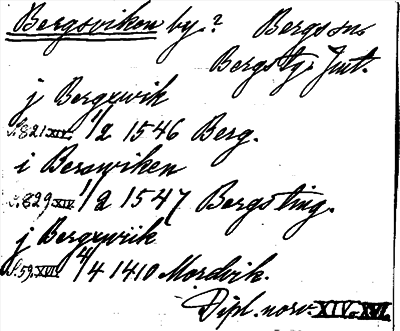 Bergsviken by? Bergs sn.
Bergs tg. Jmt.
j Bergxwik
S. 821 XIV. 1/2 1546 Berg.
i Berswiken
S. 829 XIV 1/2 1547 Bergs ting.
j Bergxwiik
S. 59. XVI. 4/4 1410 Mordvik.
Dipl. norv. XIV-XVI.